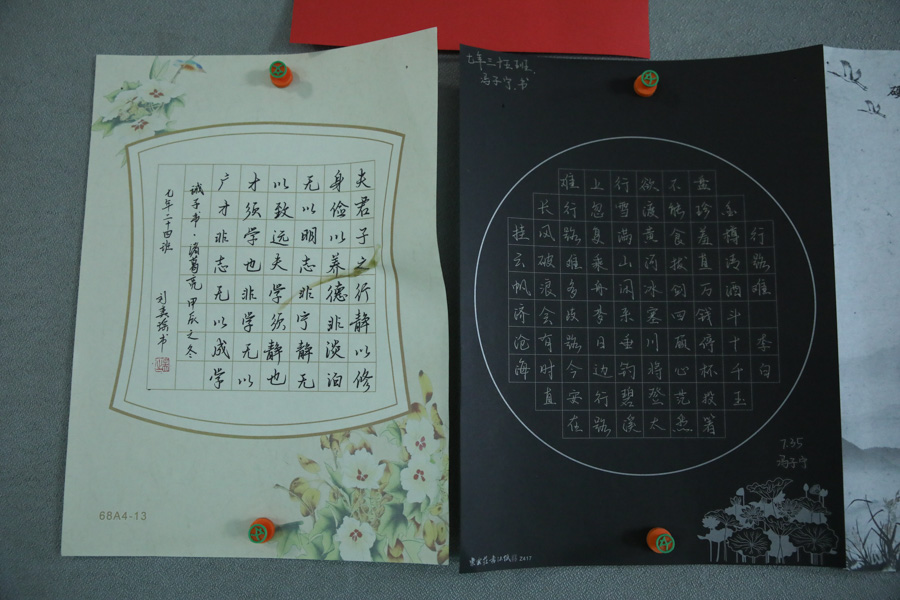 夫君子之行静以修
身俭以养德非淡泊
无以明志非宁静无
以致远夫学须静也
才须学也非学无以
广才非志无以成学
诫子书·诸葛亮 甲辰之冬
七年二十四班
68A4-13
七年三十五班
冯子宁书
行路难 李白
金樽清酒斗十千玉
盘珍羞直万钱停杯投箸
不能食拔剑四顾心茫然
欲渡黄河冰塞川将登太
行雪满山闲来垂钓碧溪
上忽复乘舟梦日边行路
难行路难多歧路今安在
长风破浪会有时直
挂云帆济沧海
7.35
冯子宁